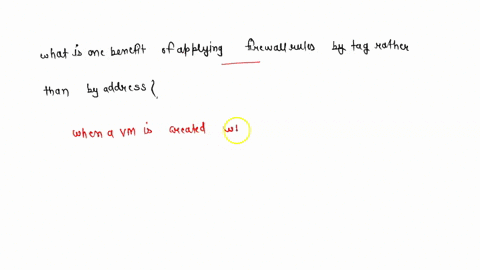 what is one benefit of applying firewall rules by tag rather
than by address {
when a VM is created wi